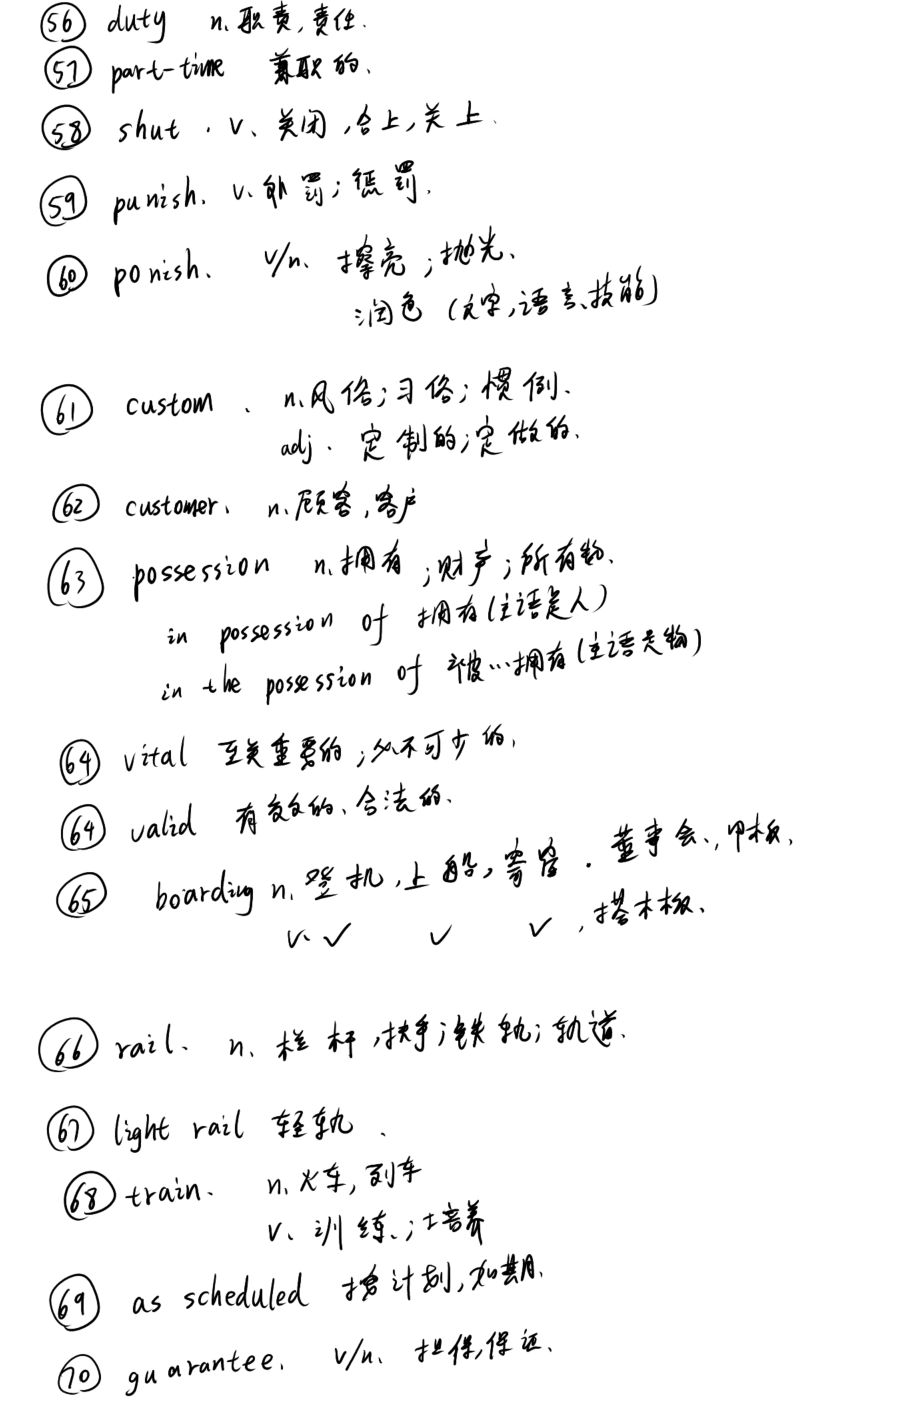 56 duty n.职责,责任.
57 part-time 兼职的.
58 shut. v、关闭,合上,关上.
59 punish. v.处罚;惩罚.
60 ponish. v/n、擦亮;抛光、
润色(文字,语言、技能)
61 custom. n.风俗;习俗;惯例.
adj. 定制的;定做的.
62 customer. n.顾客,客户
63 possession n.拥有;财产;所有物.
in possession of 拥有(主语是人)
in the possession of 被…拥有(主语是物)
64 vital 至关重要的;必不可少的.
64 valid 有效的、合法的.
65 boarding n.登机,上船,寄宿.董事会.,甲板.
v.✓ ✓ ✓,搭木板.
66 rail. n.栏杆,扶手;铁轨;轨道.
67 light rail 轻轨.
68 train. n.火车,列车
v、训练.;培养
69 as scheduled 按计划,如期.
70 guarantee. v/n. 担保,保证.